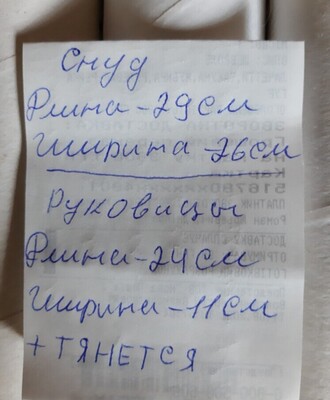 Снуд
Длина-29см
Ширина-26см
Руковицы
Длина-24см
Ширина-11см
+ТЯНЕТСЯ